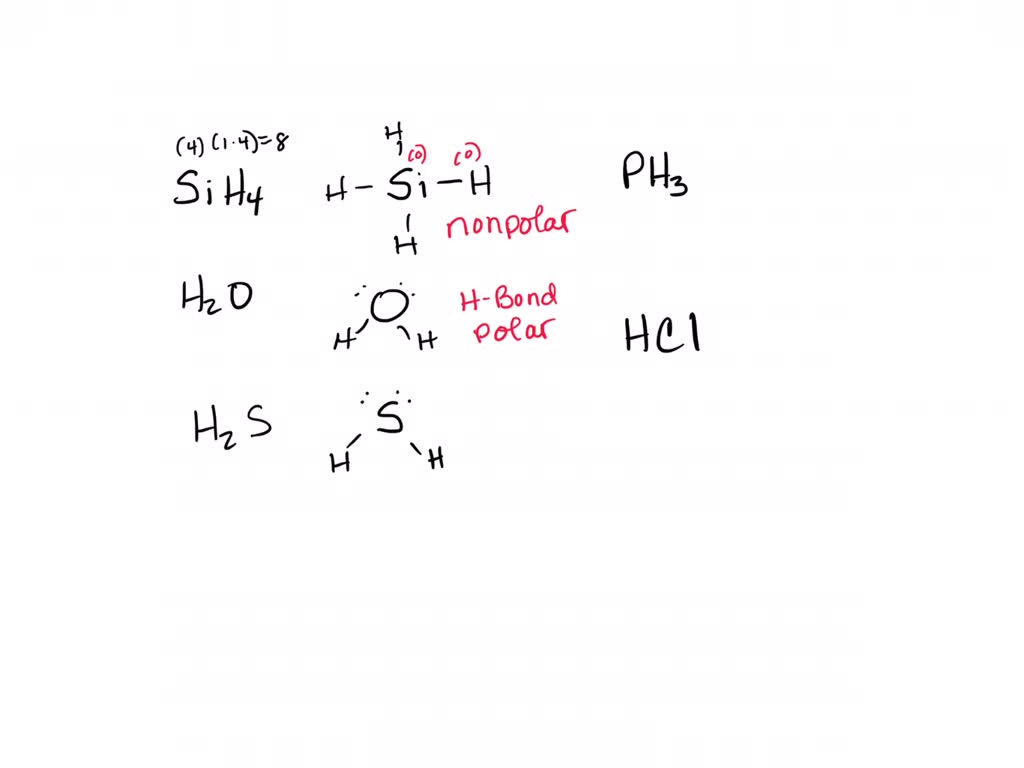 (4) (1·4)=8
SiH4
H
(0) (0)
H - Si - H
H
nonpolar
PH3
H2O
O
H H
H-Bond
polar
HCl
H2S
S
H H